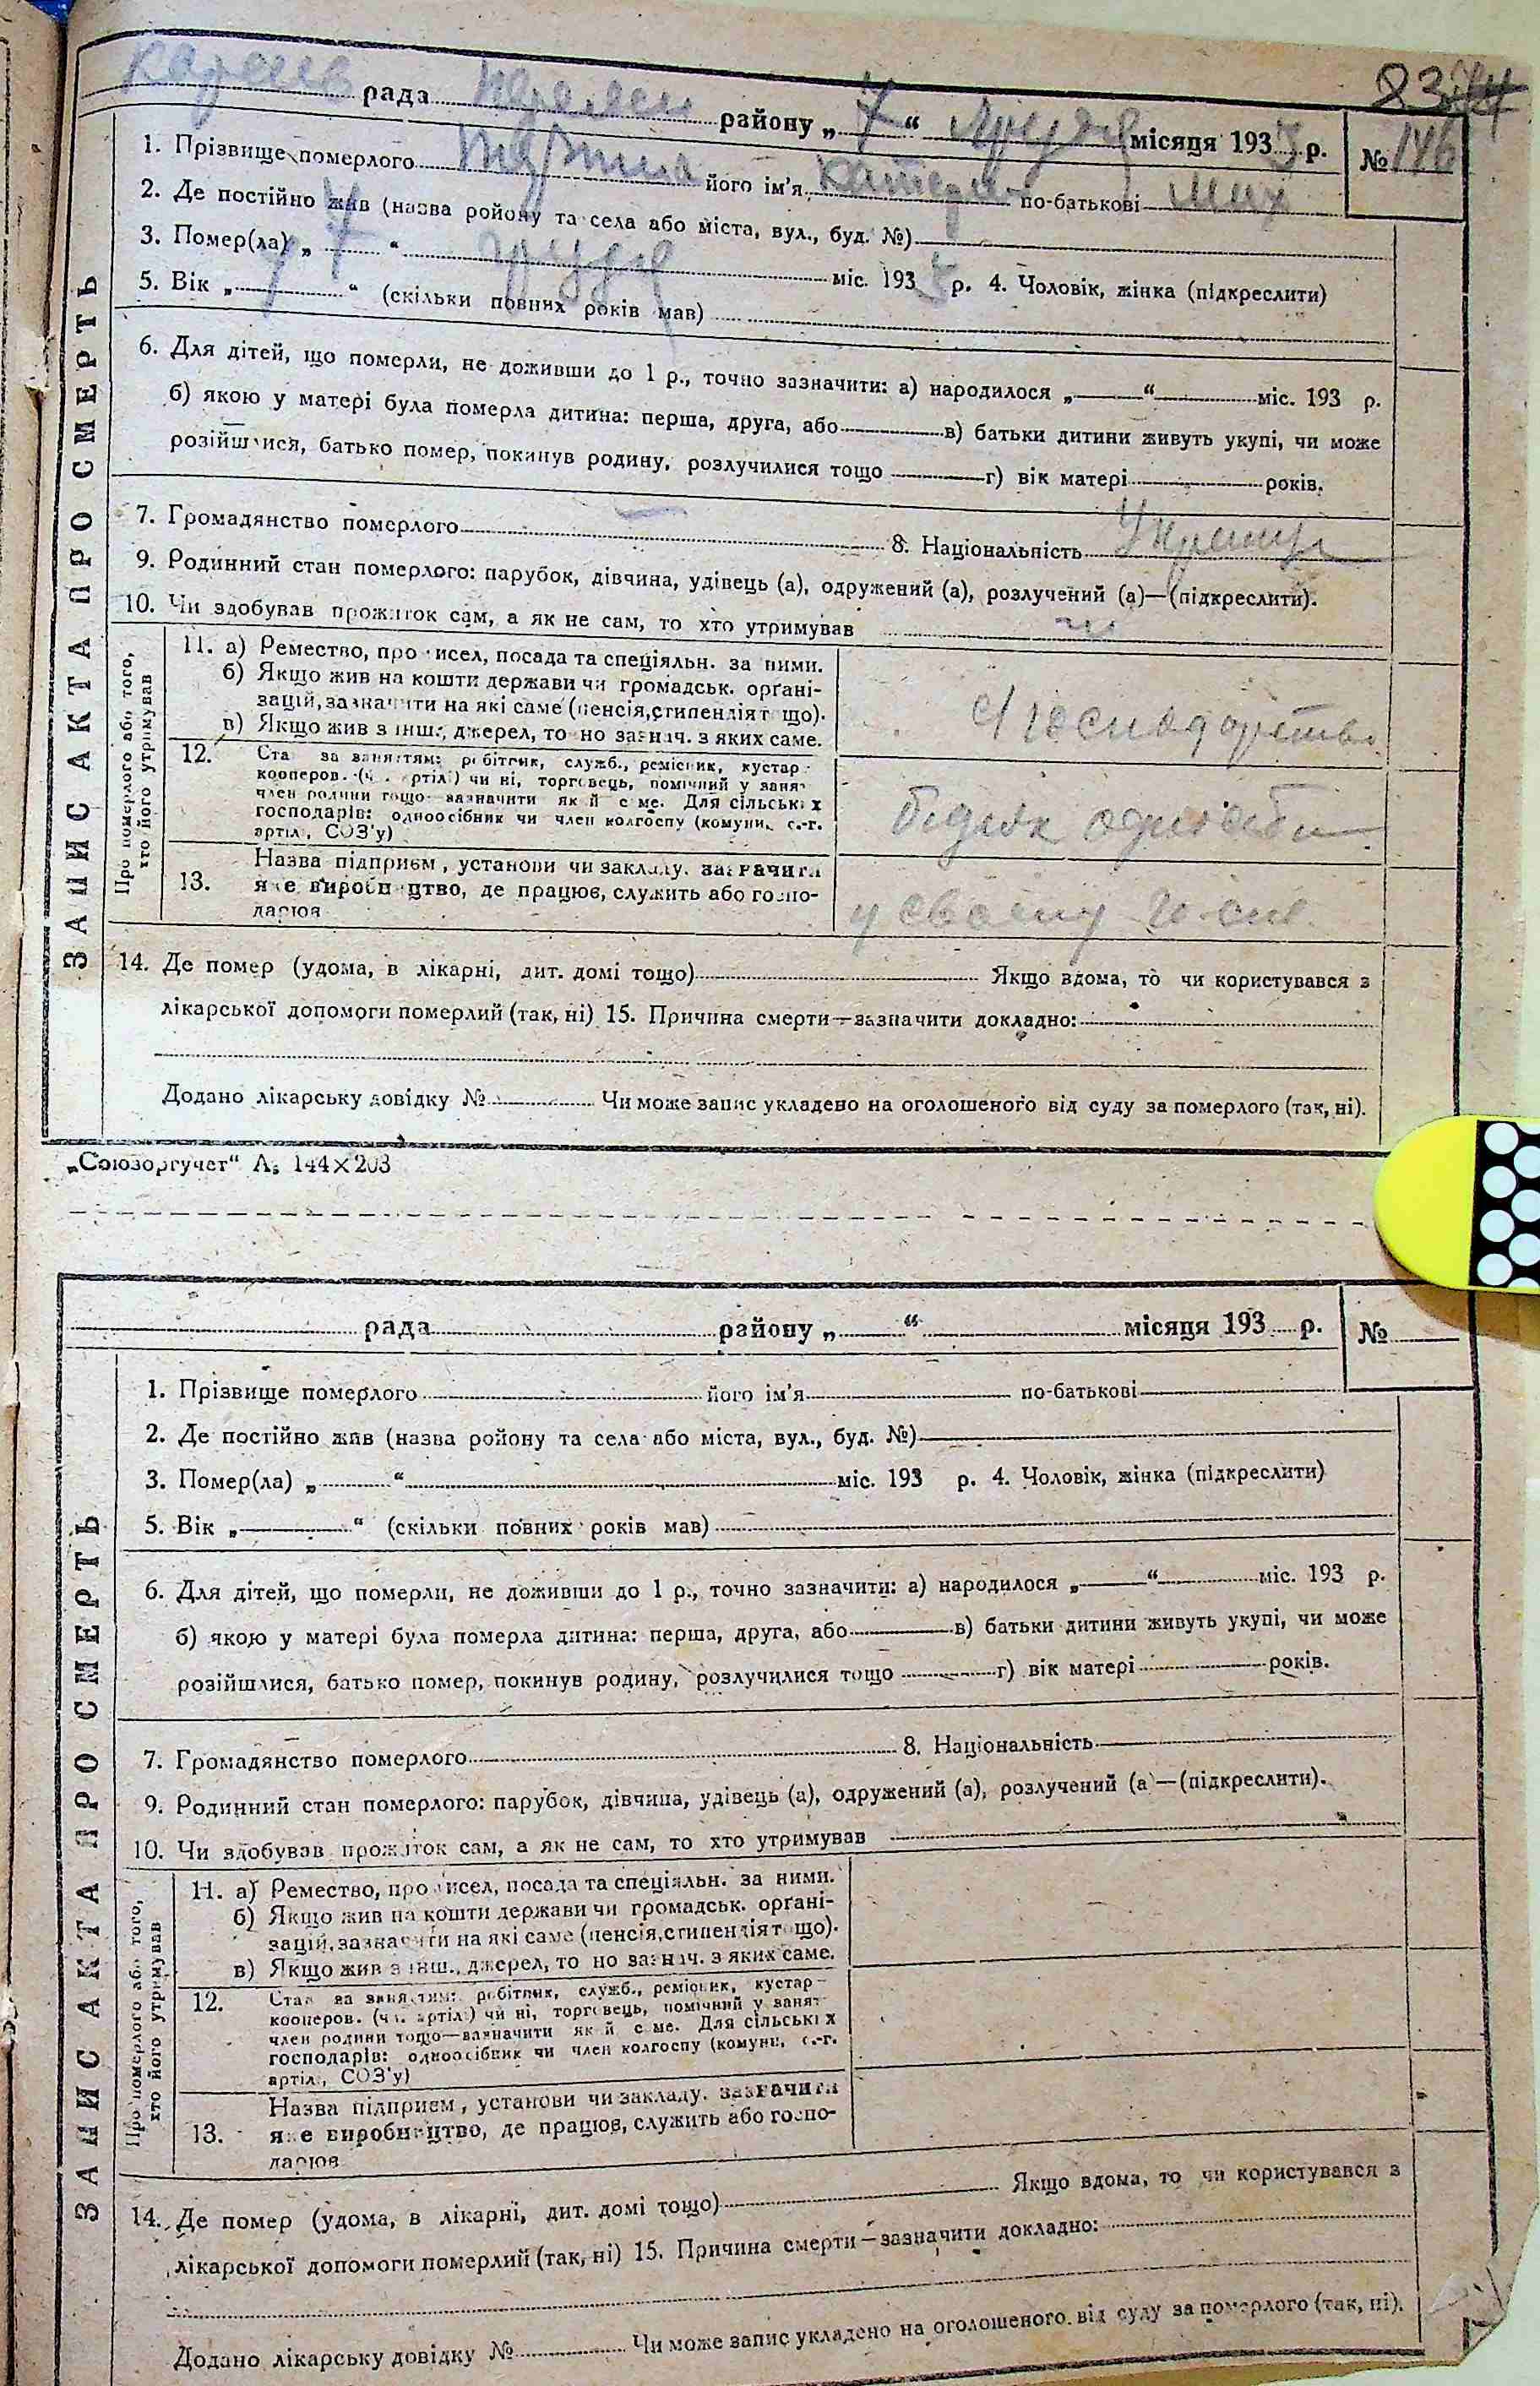 83
рада району „ 7 “ Грудня місяця 193 р. № 146
1. Прізвище померлого його ім'я Катерин по-батькові Мих
2. Де постійно жив (назва ройону та села або міста, вул., буд. №)
3. Помер(ла) „ 7 “ грудня міс. 193 р. 4. Чоловік, жінка (підкреслити)
5. Вік „ “ (скільки повних років мав)
6. Для дітей, що померли, не доживши до 1 р., точно зазначити: а) народилося „ “ міс. 193 р.
б) якою у матері була померла дитина: перша, друга, або в) батьки дитини живуть укупі, чи може
розійшлися, батько помер, покинув родину, розлучилися тощо г) вік матері років.
7. Громадянство померлого 8. Національність
9. Родинний стан померлого: парубок, дівчина, удівець (а), одружений (а), розлучений (а)—(підкреслити).
10. Чи здобував прожиток сам, а як не сам, то хто утримував
ЗАПИС АКТА ПРО СМЕРТЬ
Про померлого або того,
хто його утримував
11. а) Ремество, про исел, посада та спеціяльн. за ними.
б) Якщо жив на кошти держави чи громадськ. орґані-
зацій, зазначити на які саме (пенсія, стипендія т що).
в) Якщо жив з інш., джерел, то но зазнач. з яких саме.
С/господарство
12. Ста за заняттям: робітник, служб., ремісник, кустар
кооперов. (ч. артіл.) чи ні, торговець, помічний у занят
член родини тощо—зазначити як й с ме. Для сільськ х
господарів: одноосібник чи член колгоспу (комуни, с.-г.
артіл., СОЗ'у)
бідняк одноосібн
13. Назва підприєм , установи чи закладу. зазначити
яке виробництво, де працює, служить або госпо-
дарює
у своєму
14. Де помер (удома, в лікарні, дит. домі тощо) Якщо вдома, то чи користувався з
лікарської допомоги померлий (так, ні) 15. Причина смерти—зазначити докладно:
Додано лікарську довідку № Чи може запис укладено на оголошеного від суду за померлого (так, ні).
„Союзоргучет“ А₅ 144×203
рада району „ “ місяця 193 р. №
1. Прізвище померлого його ім'я по-батькові
2. Де постійно жив (назва ройону та села або міста, вул., буд. №)
3. Помер(ла) „ “ міс. 193 р. 4. Чоловік, жінка (підкреслити)
5. Вік „ “ (скільки повних років мав)
6. Для дітей, що померли, не доживши до 1 р., точно зазначити: а) народилося „ “ міс. 193 р.
б) якою у матері була померла дитина: перша, друга, або в) батьки дитини живуть укупі, чи може
розійшлися, батько помер, покинув родину, розлучилися тощо г) вік матері років.
7. Громадянство померлого 8. Національність
9. Родинний стан померлого: парубок, дівчина, удівець (а), одружений (а), розлучений (а —(підкреслити).
10. Чи здобував прожиток сам, а як не сам, то хто утримував
ЗАПИС АКТА ПРО СМЕРТЬ
Про померлого або того,
хто його утримував
11. а) Ремество, про исел, посада та спеціяльн. за ними.
б) Якщо жив на кошти держави чи громадськ. орґані-
зацій, зазначити на які саме (пенсія, стипендія т що).
в) Якщо жив з інш., джерел, то но зазнач. з яких саме.
12. Стан за заняттям: робітник, служб., ремісник, кустар—
кооперов. (ч. артіл.) чи ні, торговець, помічний у занят
член родини тощо—зазначити як й с ме. Для сільськ х
господарів: одноосібник чи член колгоспу (комуни, с.-г.
артіл., СОЗ'у)
13. Назва підприєм , установи чи закладу. зазначити
яке виробництво, де працює, служить або госпо-
дарює
14. Де помер (удома, в лікарні, дит. домі тощо) Якщо вдома, то чи користувався з
лікарської допомоги померлий (так, ні) 15. Причина смерти—зазначити докладно:
Додано лікарську довідку № Чи може запис укладено на оголошеного від суду за померлого (так, ні).